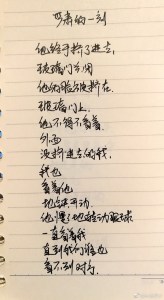 他终于挤了进去
玻璃门关闭
他的脸被挤在
玻璃门上
他不得不看着
外面
没挤进去的我
我也
看着他
地铁开动
他慢慢地转动眼球
一直看着我
直到我们谁也
看不到对方